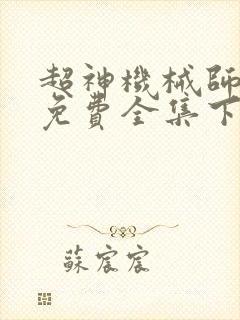 超神機械師
免費全集下
蘇宸宸